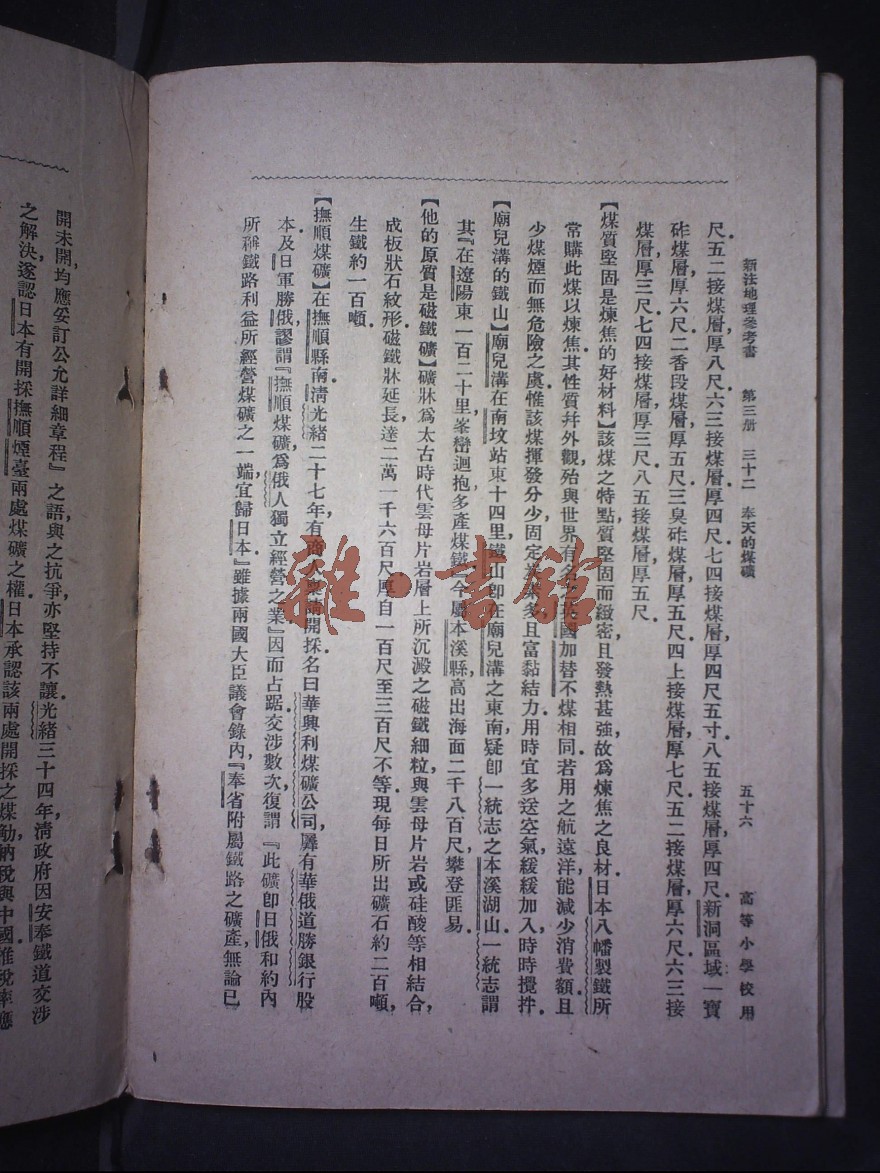 新法地理參考書　第三册　三十二　奉天的煤礦　五十六　高等小學校用
尺五二接煤層厚八尺六三接煤層厚四尺七四接煤層厚四尺五寸八五接煤層厚四尺新洞區域一寶
砟煤層厚六尺二香段煤層厚五尺三臭砟煤層厚五尺四上接煤層厚七尺五二接煤層厚六尺六三接
煤層厚三尺七四接煤層厚三尺八五接煤層厚五尺
【煤質堅固是煉焦的好材料】該煤之特點質堅固而緻密且發熱甚強故爲煉焦之良材日本八幡製鐵所
常購此煤以煉焦其性質幷外觀殆與世界有名之英國加替不煤相同若用之航遠洋能減少消費額且
少煤煙而無危險之虞惟該煤揮發分少固定炭素多且富黏結力用時宜多送空氣緩緩加入時時攪拌
【廟兒溝的鐵山】廟兒溝在南坟站東十四里鐵山卽在廟兒溝之東南疑卽一統志之本溪湖山一統志謂
其『在遼陽東一百二十里峯巒迴抱多產煤鐵』今屬本溪縣高出海面二千八百尺攀登匪易
【他的原質是磁鐵礦】礦牀爲太古時代雲母片岩層上所沉澱之磁鐵細粒與雲母片岩或硅酸等相結合
成板狀石紋形磁鐵牀延長達二萬一千六百尺厚自一百尺至三百尺不等現每日所出礦石約二百噸
生鐵約一百噸
【撫順煤礦】在撫順縣南淸光緒二十七年有商人稟請開採名曰華興利煤礦公司羼有華俄道勝銀行股
本及日軍勝俄謬謂『撫順煤礦爲俄人獨立經營之業』因而占踞交涉數次復謂『此礦卽日俄和約內
所稱鐵路利益所經營煤礦之一端宜歸日本』雖據兩國大臣議會錄內『奉省附屬鐵路之礦產無論已
開未開均應妥訂公允詳細章程』之語與之抗爭亦堅持不讓光緒三十四年淸政府因安奉鐵道交涉
之解決遂認日本有開採撫順煙臺兩處煤礦之權日本承認該兩處開採之煤勉納稅與中國惟稅率應
雜·書館